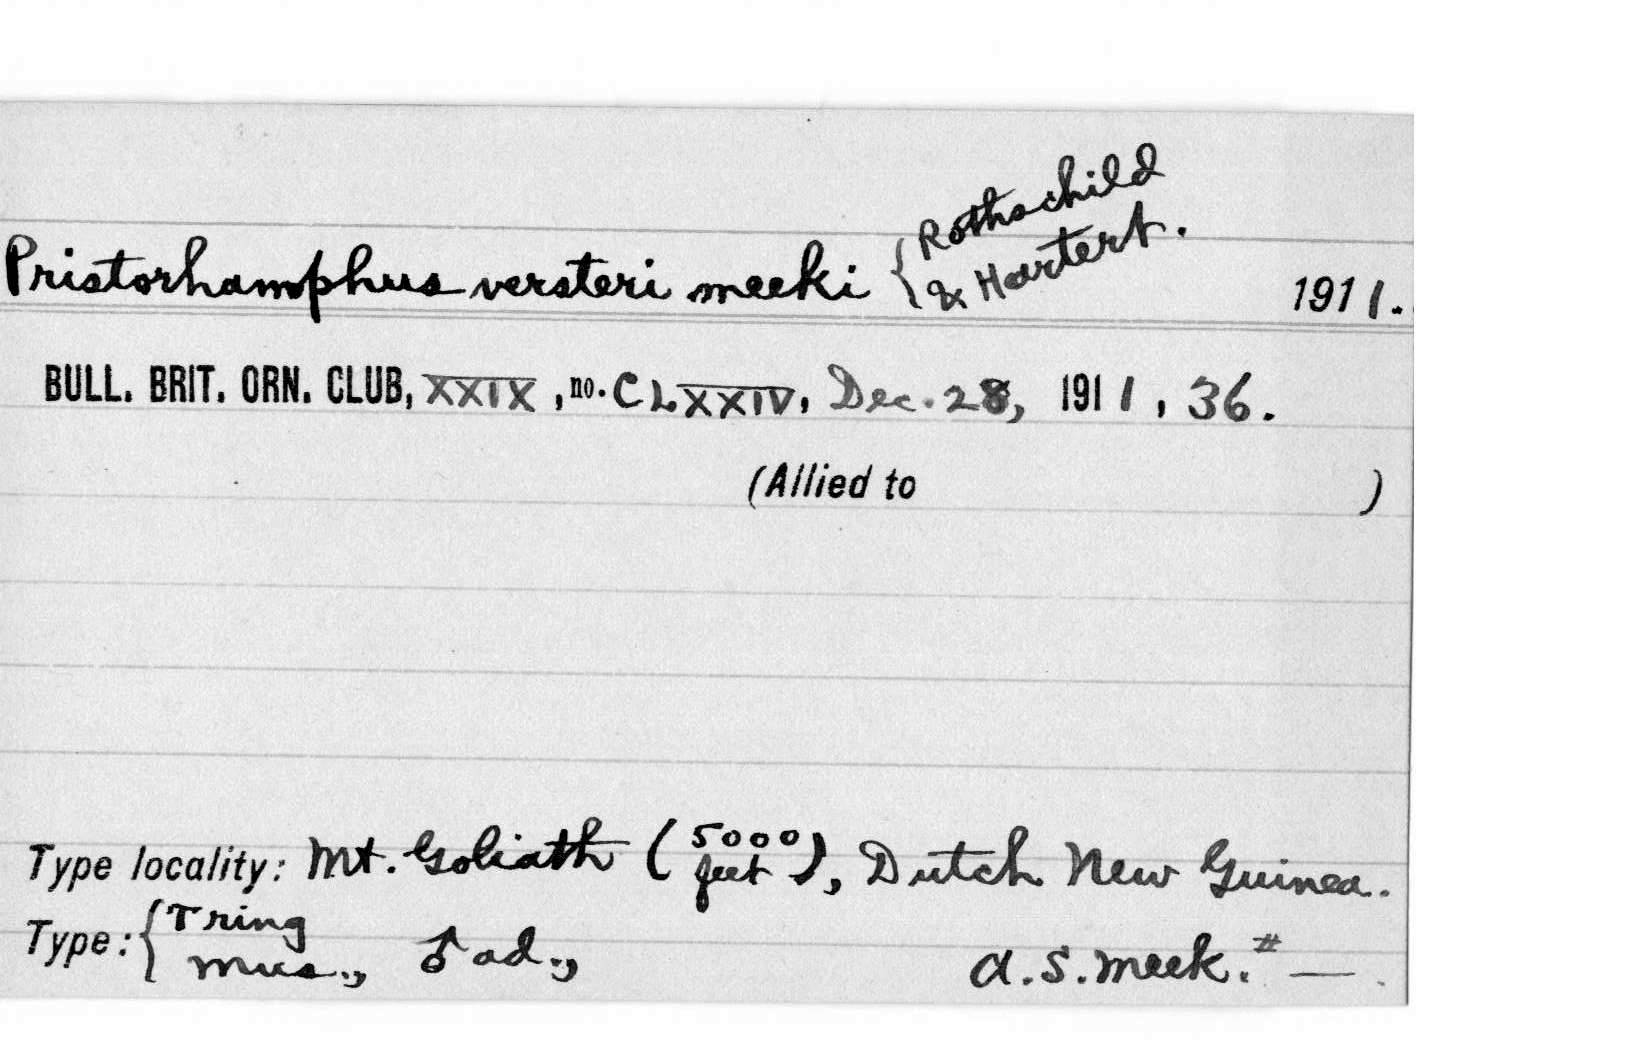 Pristorhamphus versteri meeki { Rothschild & Hartert. 1911.
BULL. BRIT. ORN. CLUB, XXIX, no. CLXXIV, Dec. 28, 1911, 36.
(Allied to )
Type locality: Mt. Goliath (5000 feet), Dutch New Guinea.
Type: { Tring Mus., ♂ ad., A. S. Meek. # —.